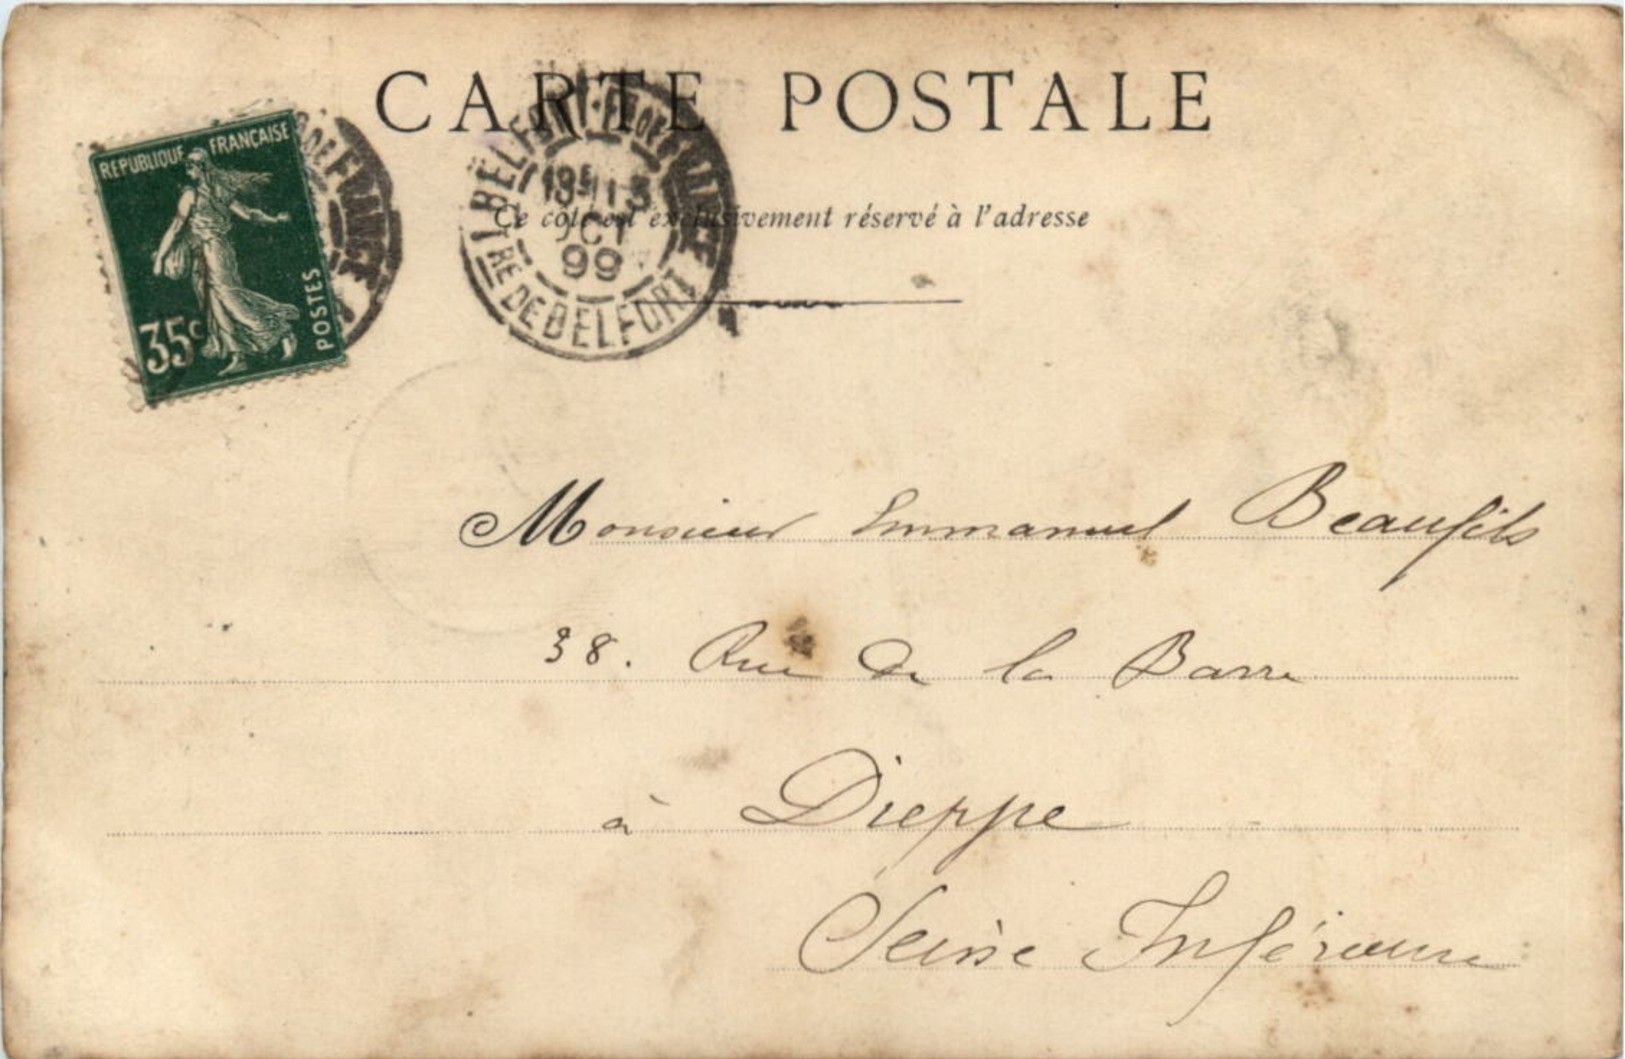 CARTE POSTALE
REPUBLIQUE FRANÇAISE
POSTES
35c
BELFORT-FG DE FRANCE
13 OCT
99
TRE DE BELFORT
Ce côté est exclusivement réservé à l'adresse
Monsieur Emmanuel Beaufils
38. Rue de la Barre
à Dieppe
Seine Inférieure